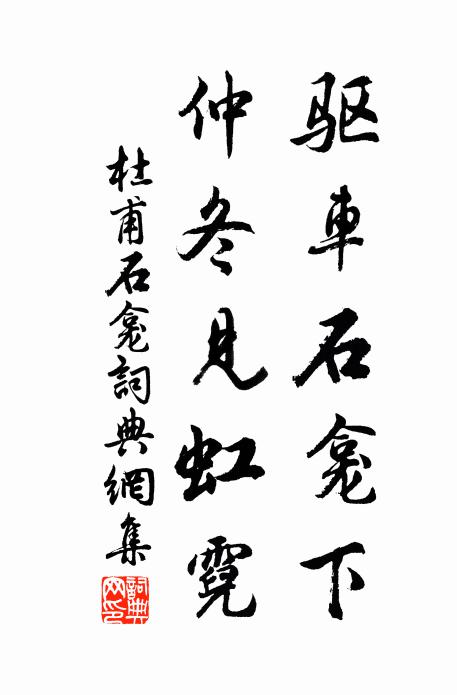 驱車石龛下
仲冬見虹霓
杜甫石龛詞典網集
詞典网印